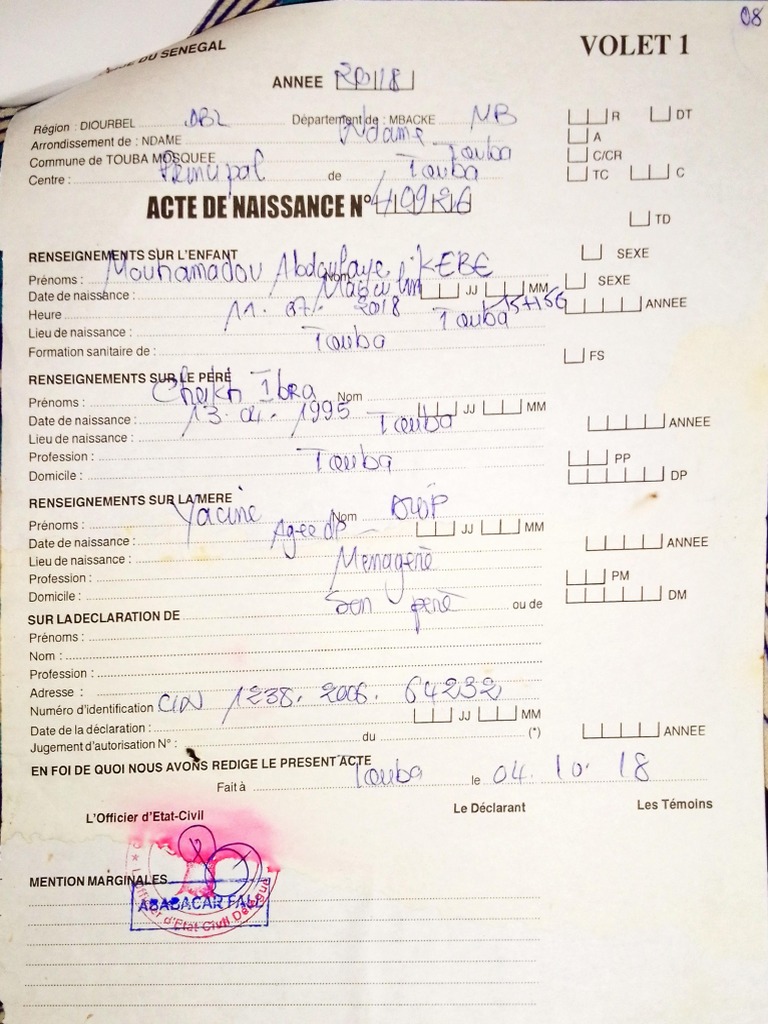 08
DU SENEGAL
VOLET 1
ANNEE 2018
Région : DIOURBEL DBL Département de : MBACKE MB
R DT
Arrondissement de : NDAME Ndame
A
Commune de TOUBA MOSQUEE Touba
C/CR
Centre : Principal de Touba
TC C
ACTE DE NAISSANCE N°
TD
RENSEIGNEMENTS SUR L'ENFANT
SEXE
Prénoms : Mouhamadou Abdoulaye Nom KEBE
SEXE
Date de naissance : Masculin JJ MM
Heure 11. 07. 2018 Touba 15H56
ANNEE
Lieu de naissance : Touba
Formation sanitaire de :
FS
RENSEIGNEMENTS SUR LE PERE
Prénoms : Cheikh Ibra Nom
Date de naissance : 13. 04. 1995 Touba JJ MM
Lieu de naissance :
ANNEE
Profession : Touba
PP
Domicile :
DP
RENSEIGNEMENTS SUR LA MERE
Prénoms : Yacine Nom DIOP
Date de naissance : Agée de JJ MM
Lieu de naissance : Menagere
ANNEE
Profession :
PM
Domicile : Son pere
DM
SUR LA DECLARATION DE ou de
Prénoms :
Nom :
Profession :
Adresse :
Numéro d'identification CIN 1238. 2006. 64232
Date de la déclaration : JJ MM
Jugement d'autorisation N° : du (*)
ANNEE
EN FOI DE QUOI NOUS AVONS REDIGE LE PRESENT ACTE
Fait à Touba le 04. 10. 18
L'Officier d'Etat-Civil Le Déclarant Les Témoins
MENTION MARGINALES
ABABACAR FALL
L'Officier d'Etat Civil Délégué